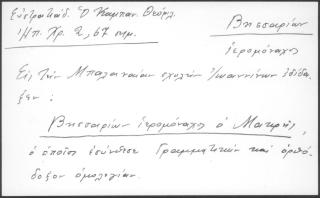 Εὐστρατιάδ. Ὁ Καμπαν. Θεόφιλ.
Ἠπ. Χρ. 2, 67 σημ.
Βησσαρίων
ἱερομόναχος
Εἰς τὴν Μπαλαναίαν σχολὴν Ἰωαννίνων ἐδίδα-
ξεν:
Βησσαρίων ἱερομόναχος ὁ Μακρῆς,
ὁ ὁποῖος ἐσύνθεσε Γραμματικὴν καὶ ὀρθό-
δοξον ὁμολογίαν.